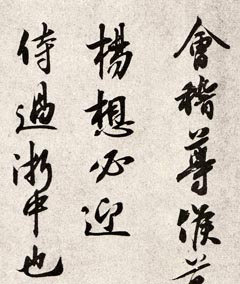 會稽尊候
楊想必迎
侍過浙中也